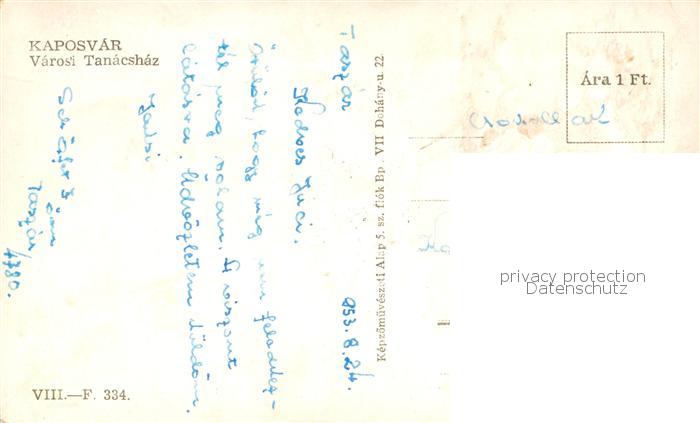 KAPOSVÁR
Városi Tanácsház
Taszár 953. 8. 24.
Kedves Juci.
hogy még nem feledkez-
tél meg rólam. A viszont
látásra. Üdvözletem küldöm.
Taszár
4780.
VIII.—F. 334.
Képzőművészeti Alap 5. sz. fiók Bp. VII Dohány-u. 22
Ára 1 Ft.
privacy protection
Datenschutz